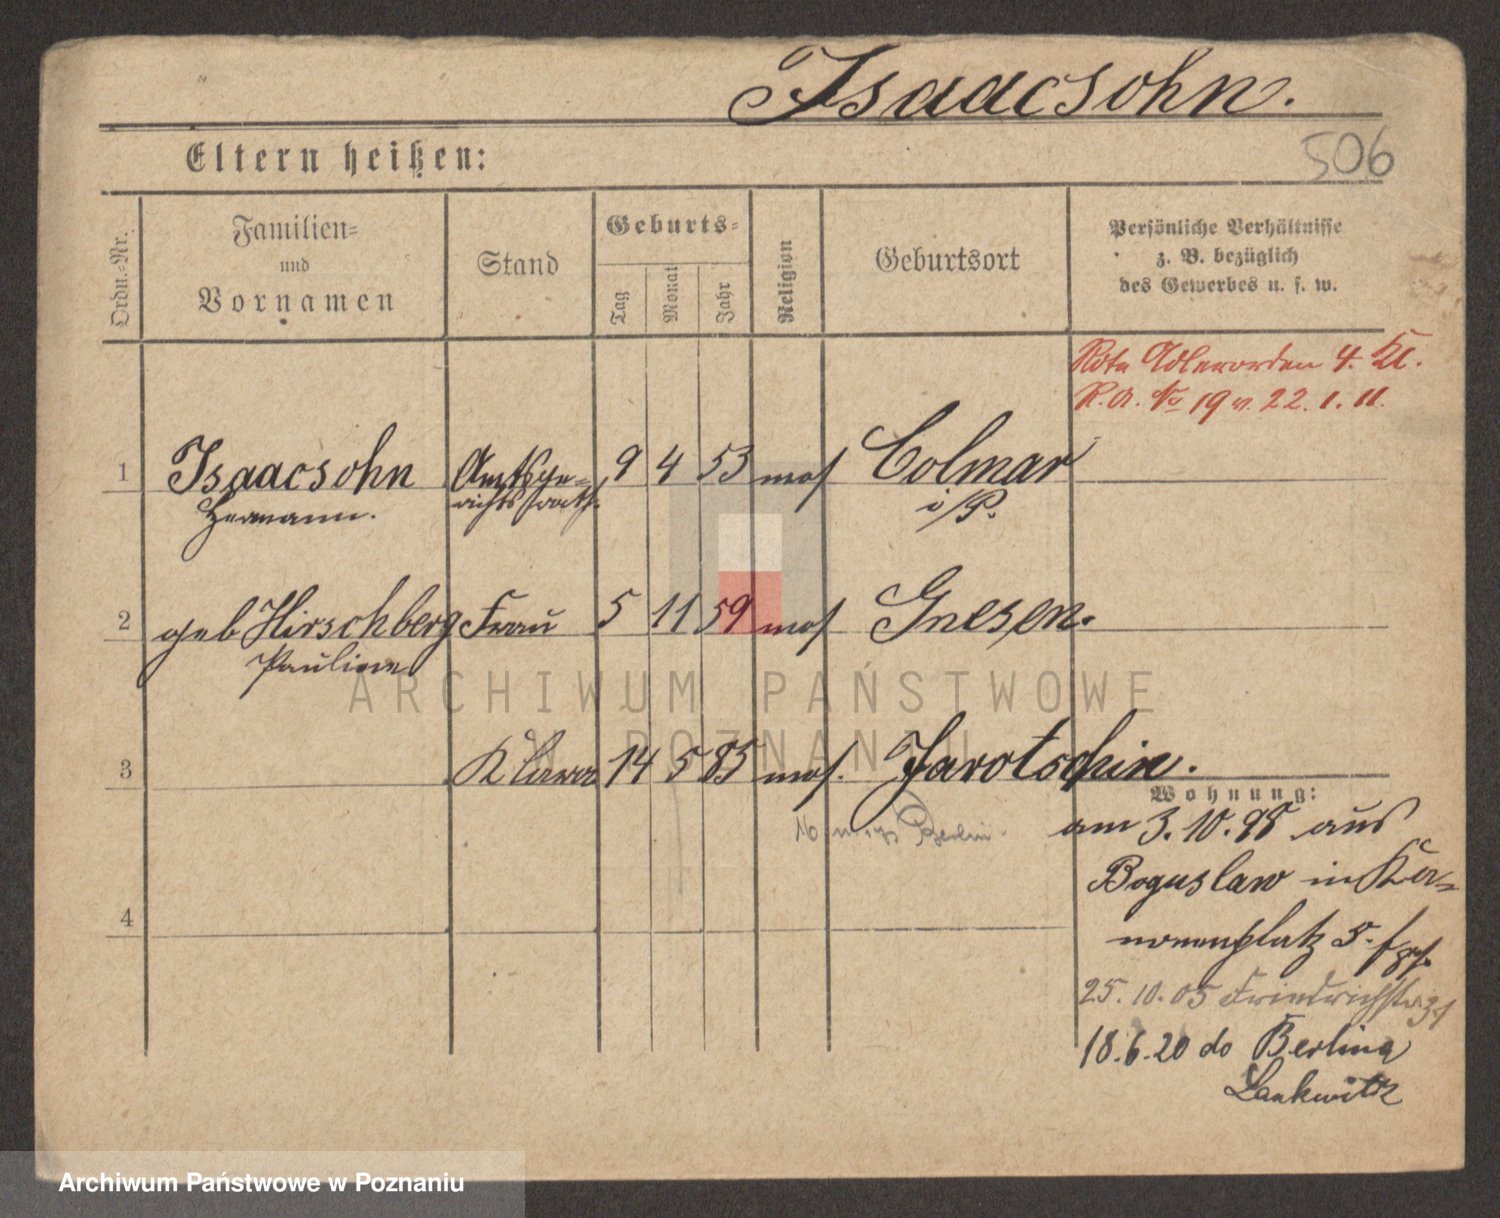 Isaacsohn.
506
Eltern heißen:
Ordn.-Nr.
Familien-
und
Vornamen
Stand
Geburts-
Tag
Monat
Jahr
Religion
Geburtsort
Persönliche Verhältnisse
z. B. bezüglich
des Gewerbes u. s. w.
Rote Adlerorden 4. Kl.
R. A. No 19 v. 22. 1. 11.
1 Isaacsohn Amtsge- 9 4 53 mos Colmar
Hermann. richtsrath. i/P.
2 geb Hirschberg Frau 5 11 59 mos Gnesen.
Pauline
3 Klara 14 5 85 mos. Jarotschin.
Wohnung:
Berlin
am 3. 10. 98 aus
Boguslaw in Ka-
nonenplatz 5.
4
25. 10. 05 Friedrichstr.
18. 6. 20 do Berlin
Lankwitz
ARCHIWUM PAŃSTWOWE
W POZNANIU
Archiwum Państwowe w Poznaniu